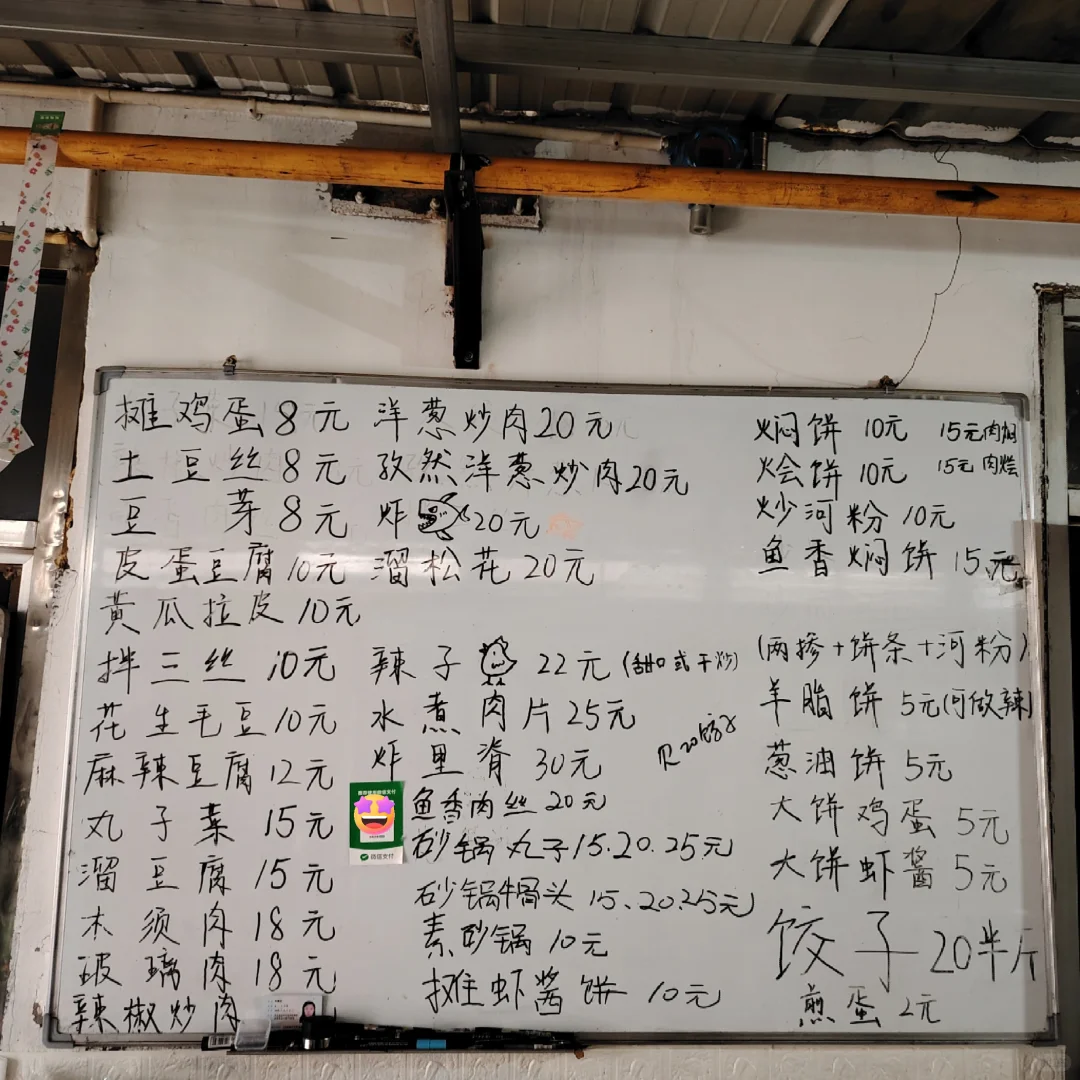 摊鸡蛋8元
土豆丝8元
豆芽8元
皮蛋豆腐10元
黄瓜拉皮10元
拌三丝10元
花生毛豆10元
麻辣豆腐12元
丸子菜15元
溜豆腐15元
木须肉18元
玻璃肉18元
辣椒炒肉
洋葱炒肉20元
孜然洋葱炒肉20元
炸 20元
溜松花20元
辣子 22元(甜口或干炒)
水煮肉片25元
炸里脊30元
鱼香肉丝20元
砂锅丸子15.20.25元
砂锅牛骨头15.20.25元
素砂锅10元
摊虾酱饼10元
微信支付
焖饼10元 15元肉焖
烩饼10元 15元肉烩
炒河粉10元
鱼香焖饼15元
(两掺+饼条+河粉)
羊脂饼5元(可做辣)
葱油饼5元
大饼鸡蛋5元
大饼虾酱5元
饺子20半斤
煎蛋2元